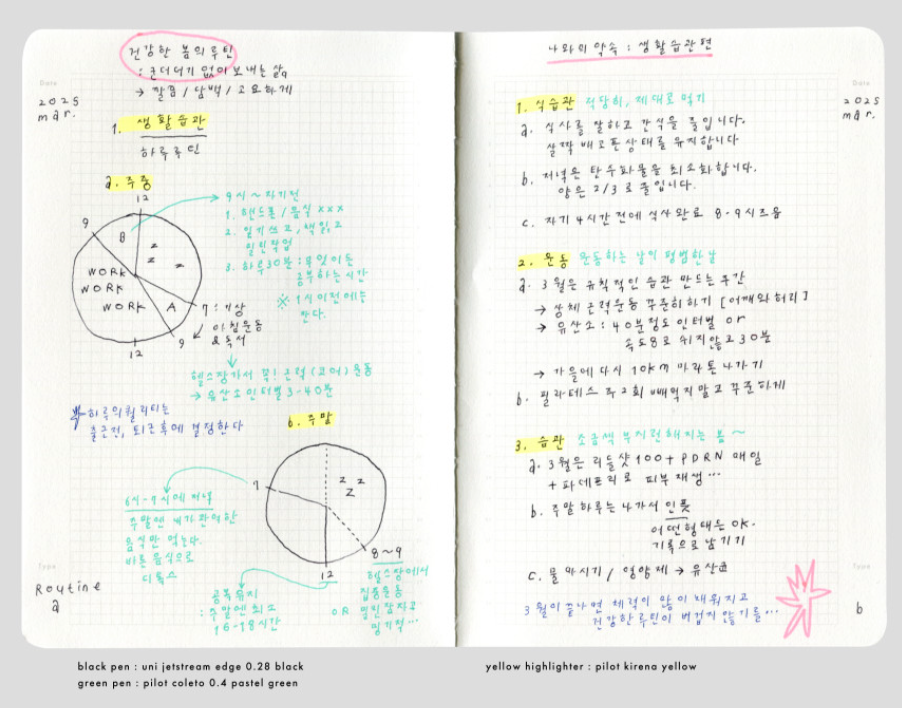 Date
2025
mar.
건강한 봄의 루틴
: 군더더기 없이 보내는 삶
→ 깔끔 / 담백 / 고요하게
1. 생활습관
하루루틴
a. 주중
12
9
B
z
z
z
WORK
WORK
WORK
A
7 : 기상
아침운동
& 독서
9
12
→ 9시 ~ 자기전
1. 핸드폰 / 음식 xxx
2. 일기쓰고, 책읽고
밀린작업
3. 하루30분 : 무엇이든
공부하는시간
※ 1시 이전에는
잔다.
헬스장가서 꼭! 근력(코어)운동
→ 유산소 인터벌 3-40분
하루의 퀄리티는
출근전, 퇴근후에 결정한다
b. 주말
z z
z
7
8~9
12
6시-7시에 저녁
주말엔 내가 관여한
음식만 먹는다.
바른 음식으로
디톡스
공복유지
: 주말엔 최소
16-18시간
헬스장에서
집중운동
OR 밀린잠자고
밍기적…
Type
Routine
a
Date
2025
mar.
나와의 약속 : 생활습관편
1. 식습관 적당히, 제대로 먹기
a. 식사를 잘하고 간식을 줄입니다.
살짝 배고픈상태를 유지합니다
b. 저녁은 탄수화물을 최소화합니다.
양은 2/3로 줄입니다.
c. 자기 4시간 전에 식사완료 8-9시즈음
2. 운동 운동하는 삶의 평범한 날
a. 3월은 규칙적인 습관 만드는 구간
→ 상체 근력운동 꾸준히하기 [어깨와허리]
→ 유산소 : 40분정도 인터벌 or
속도8로 쉬지않고 30분
→ 가을에 다시 10km 마라톤 나가기
b. 필라테스 주2회 빼먹지말고 꾸준하게
3. 습관 조금씩 부지런해지는 봄 ~
a. 3월은 리들샷100 + PDRN 매일
+ 파데프리로 피부 재생…
b. 주말 하루는 나가서 인풋
어떤형태든 OK.
기록으로 남기기
c. 물 마시기 / 영양제 → 유산균
3월이 끝나면 체력이 많이 채워지고
건강한루틴이 버겁지 않기를…
Type
b
black pen : uni jetstream edge 0.28 black
green pen : pilot coleto 0.4 pastel green
yellow highlighter : pilot kirena yellow